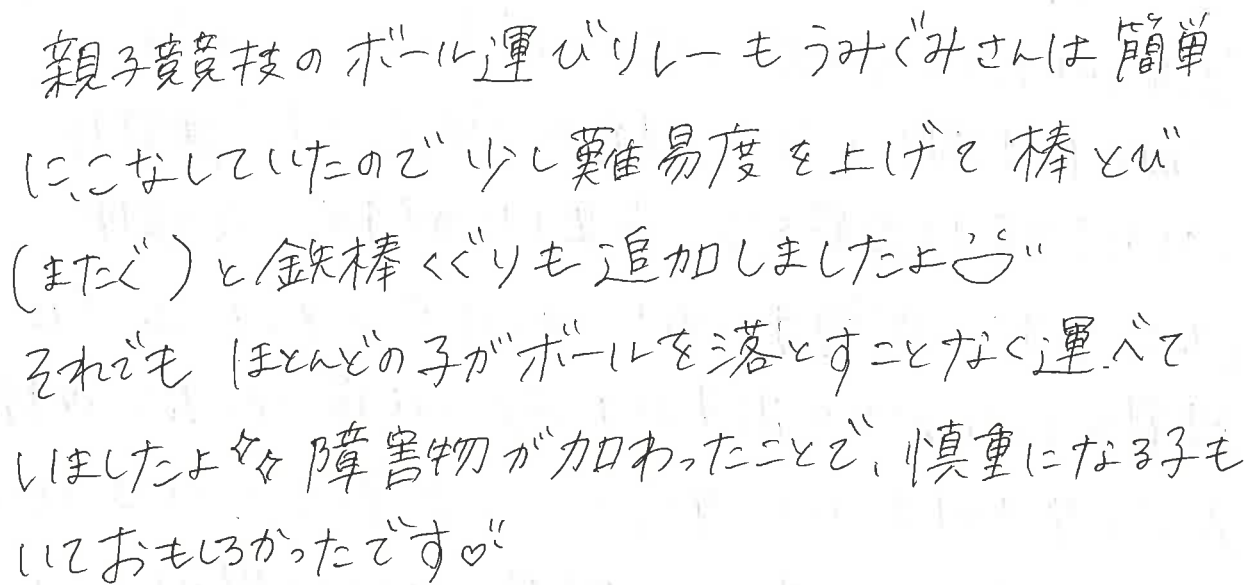 親子競技のボール運びリレーもうみぐみさんは簡単
にこなしていたので少し難易度を上げて棒とび
(またぐ)と鉄棒くぐりも追加しましたよ
それでもほとんどの子がボールを落とすことなく運べて
いましたよ☆☆障害物が加わったことで、慎重になる子も
いておもしろかったです♡